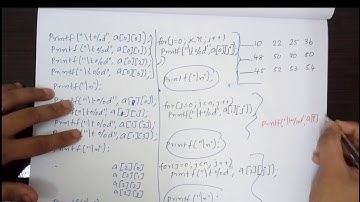 Printf("\t%d", a[0][0]);
Printf("\t%d", a[0][1]);
Printf("\t%d", a[0][2]);
Printf("\t%d", a[0][3]);
Printf("\n");
Printf("\t%d", a[1][0]);
Printf("\t%d", a[1][1]);
Printf("\t%d", a[1][2]);
Printf("\t%d", a[1][3]);
Printf("\n");
a[2][0]
a[2][1]
a[2][2]
a[2][3]
for(j=0; j<n; j++)
Printf("\t%d", a[0][j]);
Printf("\n");
for(j=0; j<n; j++)
Printf("\t%d", a[1][j]);
Printf("\n");
for(j=0; j<n; j++)
Printf("\t%d", a[2][j]);
Printf("\n");
10 22 25 36
48 50 70 80
45 52 53 54
Printf("\t%d", a[